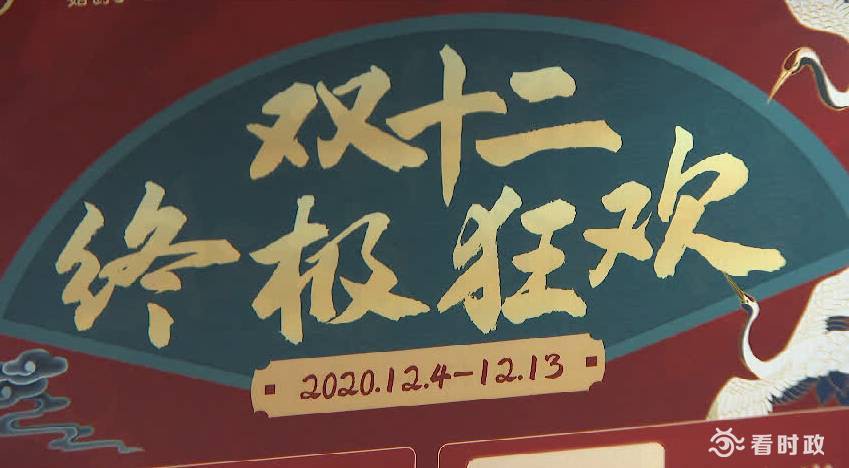 双十二
终极狂欢
2020.12.4-12.13
看时政